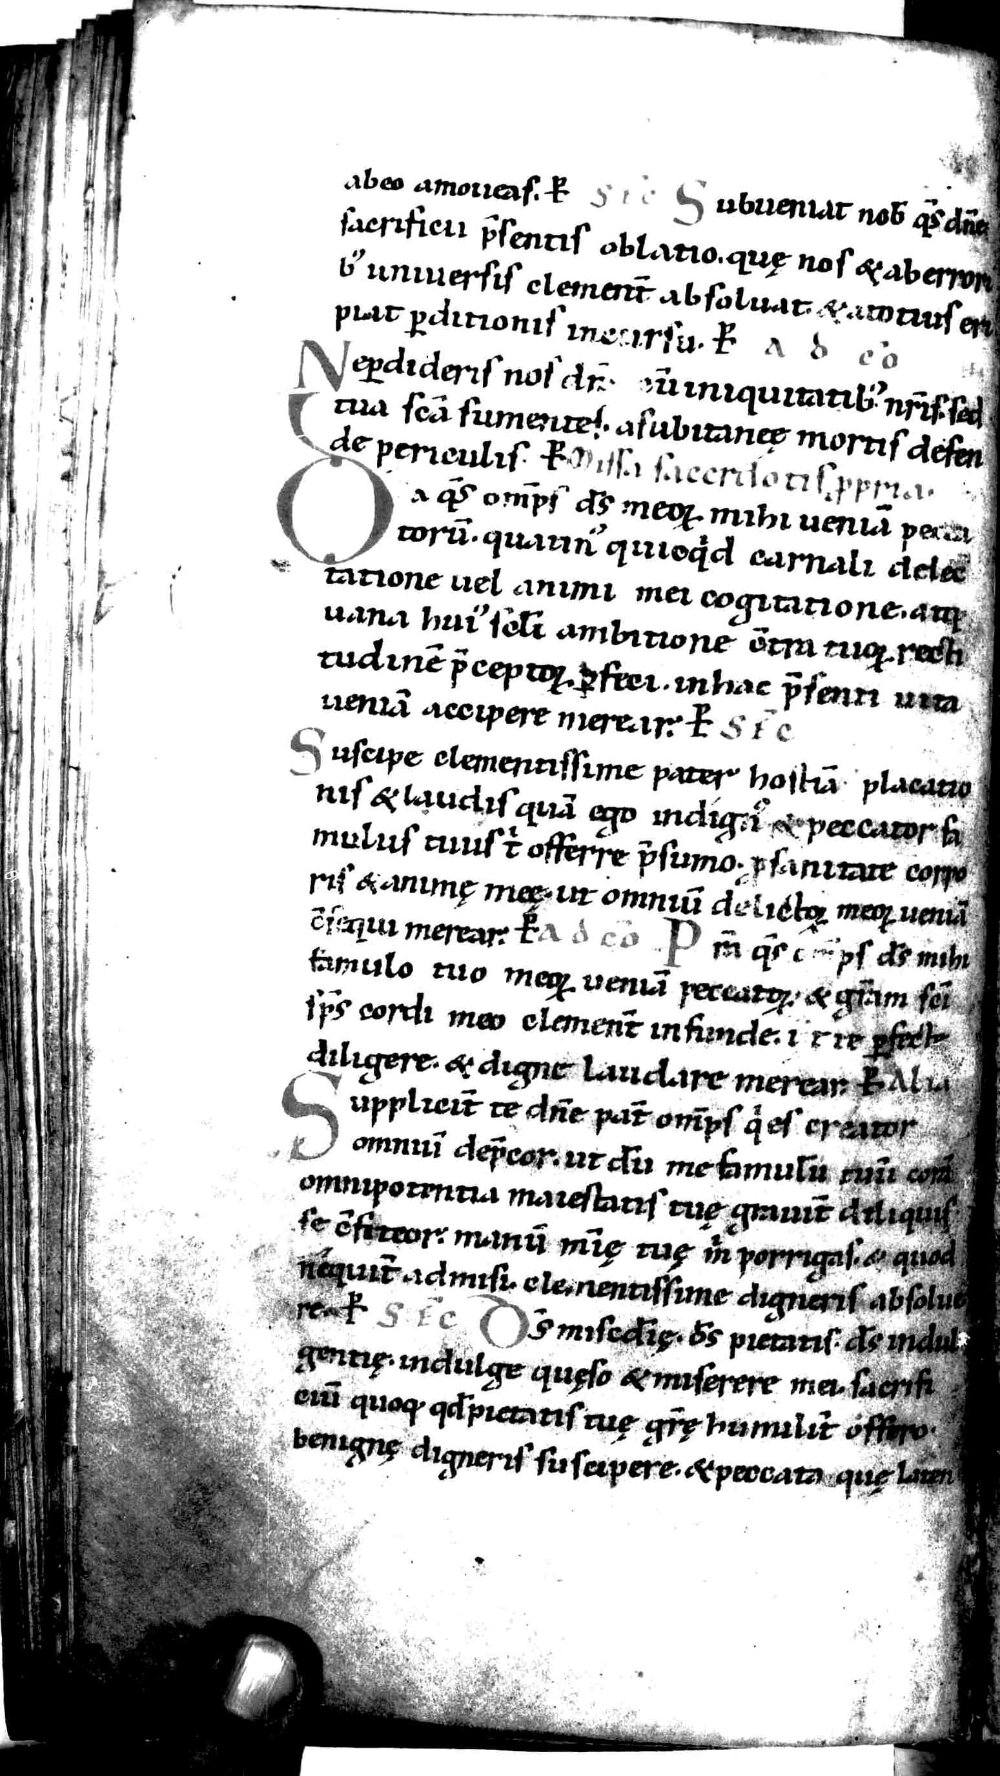 abeo amoueas. ꝶ S̄ ic̄ Subueniat nob̄ q̄s dn̄e
sacrificii p̄sentis oblatio. quę nos & ab errori
b᾽ uniuersis clement̄ absoluat. & a totius eri
piat ꝑditionis incursu. ꝶ ad cō
Neꝑdideris nos dn̄e cū iniquitatib᾽ nr̄is. sed
tua sc̄a sumentes. a subitaneę mortis defen
de periculis. ꝶ Missa sacerdotis ꝓpria.
Da q̄s om̄ps ds̄ meoꝝ mihi ueniā pecca
torū. quatin᾽ quicqd̄ carnali delec
tatione uel animi mei cogitatione. atq;
uana hui᾽ scl̄i ambitione c̄tra tuoꝝ recti
tudinē p̄ceptoꝝ ꝑfeci. in hac p̄senti uita
ueniā accipere merear. ꝶ S̄ ic̄
Suscipe clementissime pater hostiā placatio
nis & laudis quā ego indign᾽ & peccator fa
mulus tuus t̄ offerre p̄sumo. ꝓ sanitate corpo
ris & animę meę. ut omniū delictoꝝ meoꝝ ueniā
c̄sequi merear. ꝶ ad cō Prā q̄s om̄ps ds̄ mihi
famulo tuo meoꝝ ueniā peccatoꝝ. & gr̄am sc̄i
sp̄s cordi meo clement̄ infunde. ꝑfecte
diligere. & digne laudare merear. ꝶ Alia
Supplicit̄ te dn̄e pat̄ om̄ps q̄ es creator
omniū dep̄cor. ut dū me famulū tuū corā
omnipotentia maiestatis tuę grauit̄ deliquis
se c̄fiteor. manū mīę tuę m̄ porrigas. & quod
nequit̄ admisi. clementissime digneris absolue
re. ꝶ S̄ ic̄ Ds̄ misc̄dię. ds̄ pietatis. ds̄ indul
gentię. indulge quęso & miserere mei. sacrifi
ciū quoq; qd̄ pietatis tuę gr̄ę humilit̄ offero.
benignę digneris suscipere. & peccata quę laten